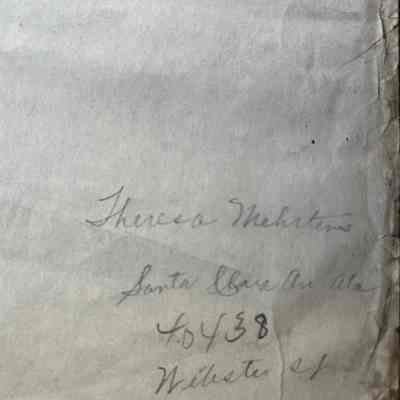 Theresa Mehrtens
Santa Clara Av Ala
438
Webster St